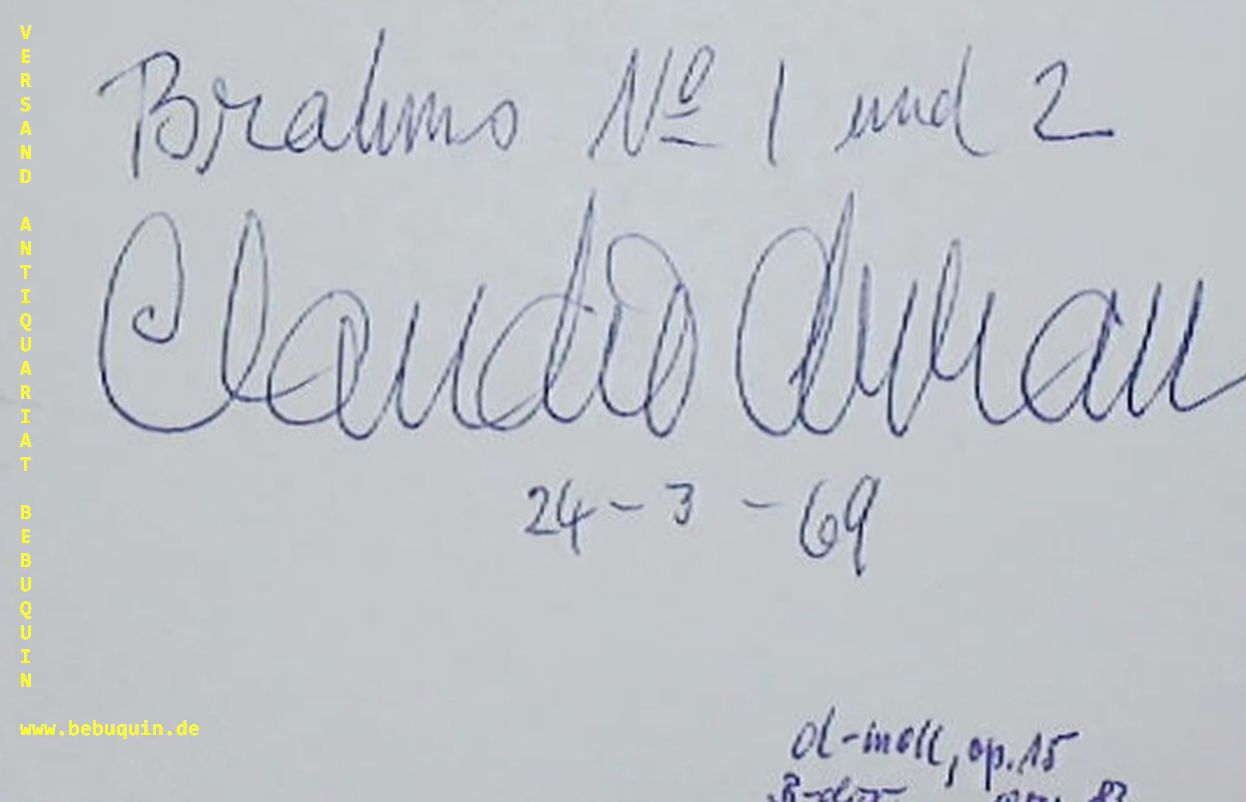 Brahms Nº 1 und 2
Claudio Arrau
24-3-69
d-moll, op. 15
B-dur op. 83
VERSAND ANTIQUARIAT BEBUQUIN
www.bebuquin.de